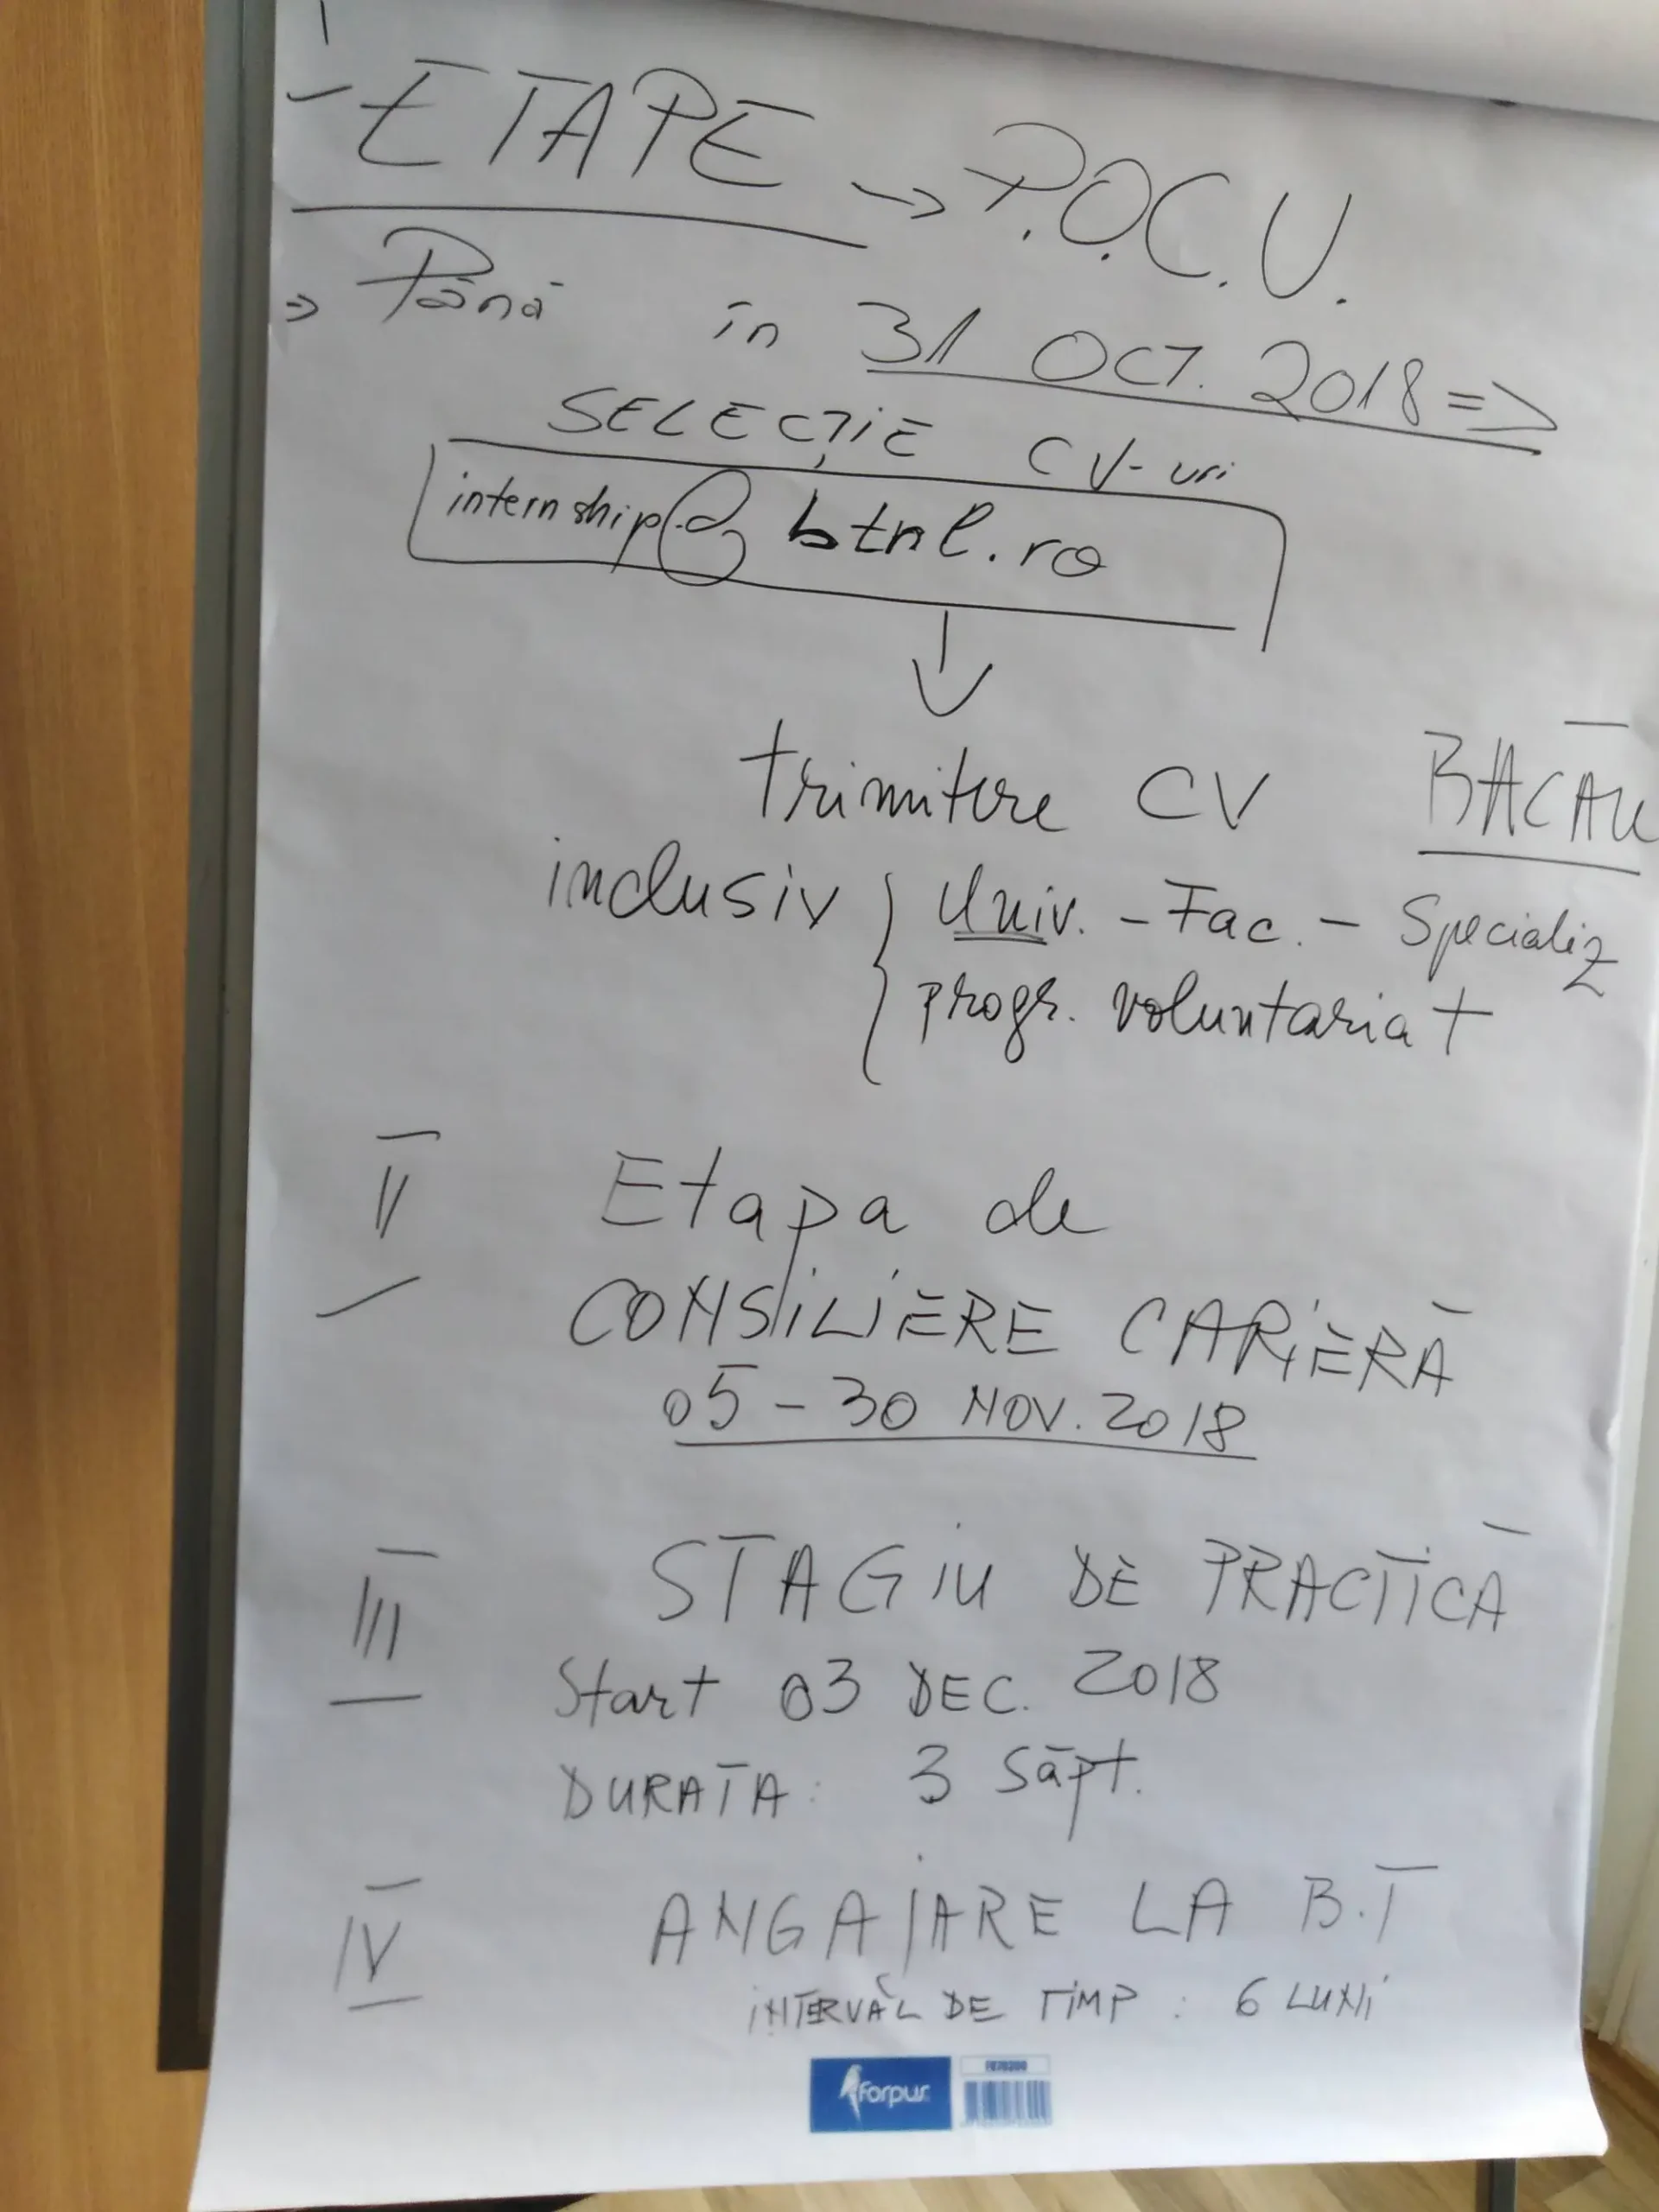 I
ETAPE → P.O.C.U.
⇒ Până în 31 OCT. 2018 ⇒
SELECȚIE CV-uri
internship@btrl.ro
trimitere CV BACĂU
inclusiv { Univ. - Fac. - Specializ
progr. voluntariat
II Etapa de
CONSILIERE CARIERĂ
05 - 30 NOV. 2018
III STAGIU DE PRACTICĂ
Start 03 DEC. 2018
DURATA: 3 săpt.
IV ANGAJARE LA B.T
INTERVAL DE TIMP : 6 LUNI
forpus